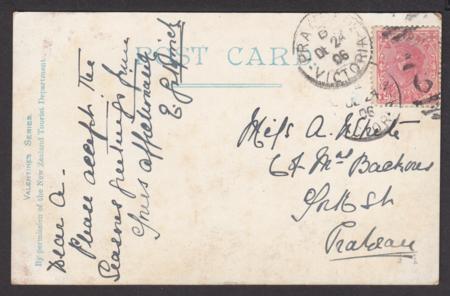 POST CARD
VALENTINES SERIES.
By permission of the New Zealand Tourist Department.
Dear A.
Please accept the
Seasons greetings from
Yours affectionately
PRA
DE 24
06
VICTORIA
Miss A. White
C/o Mrs Backous
York St
Prahran